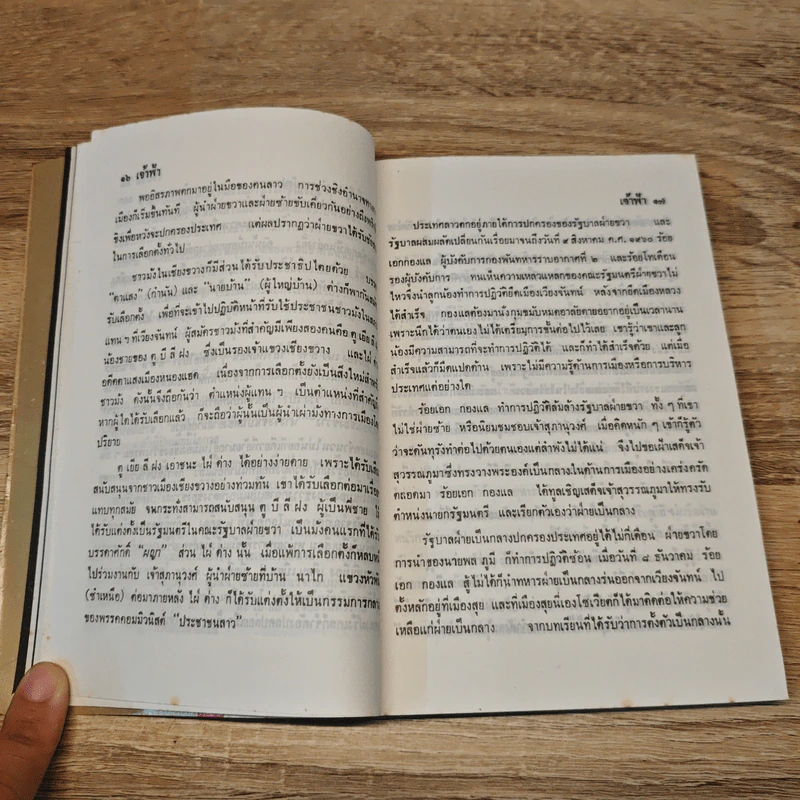 ๑๖ เจ้าฟ้า
พออิสรภาพตกมาอยู่ในมือของคนลาว การช่วงชิงอำนาจทาง
เมืองก็เริ่มขึ้นทันที ผู้นำฝ่ายขวาและฝ่ายซ้ายขับเคี่ยวกันอย่างถึงพริก
ขิงเพื่อหวังจะปกครองประเทศ แต่ผลปรากฏว่าฝ่ายขวาได้รับชัย
ในการเลือกตั้งทั่วไป
ชาวม้งในเชียงขวางก็มีส่วนได้รับประชาธิปไตยด้วย
"ตาแสง" (กำนัน) และ "นายบ้าน" (ผู้ใหญ่บ้าน) ต่างก็พากันสมัคร
รับเลือกตั้ง เพื่อที่จะเข้าไปปฏิบัติหน้าที่รับใช้ประชาชนชาวม้งใน
แทน ๆ ที่เวียงจันทน์ ผู้สมัครชาวม้งที่สำคัญมีเพียงสองคนคือ ตู เยีย ลี
น้องชายของ ตู บี ลี ฝง ซึ่งเป็นรองเจ้าแขวงเชียงขวาง และไฝ่ ด่าง
อดีตตาแสงเมืองหนองแฮด เนื่องจากการเลือกตั้งยังเป็นสิ่งใหม่สำหรับ
ชาวม้ง ดังนั้นจึงถือกันว่า ตำแหน่งผู้แทน ๆ เป็นตำแหน่งที่สำคัญ
หากผู้ใดได้รับเลือกแล้ว ก็จะถือว่าผู้นั้นเป็นผู้นำเผ่าม้งทางการเมืองโดย
ปริยาย
ตู เยีย ลี ฝง เอาชนะ ไฝ่ ด่าง ได้อย่างง่ายดาย เพราะได้รับเสียง
สนับสนุนจากชาวเมืองเชียงขวางอย่างท่วมท้น เขาได้รับเลือกต่อมาเรื่อย
แทบทุกสมัย จนกระทั่งสามารถสนับสนุน ตู บี ลี ฝง ผู้เป็นพี่ชาย ให้
ได้รับแต่งตั้งเป็นรัฐมนตรีในคณะรัฐบาลฝ่ายขวา เป็นม้งคนแรกที่ได้รับ
บรรดาศักดิ์ "ผญา" ส่วน ไฝ่ ด่าง นั้น เมื่อแพ้การเลือกตั้งก็หลบหนี
ไปร่วมงานกับ เจ้าสุภานุวงศ์ ผู้นำฝ่ายซ้ายที่บ้าน นาไก แขวงหัวพัน
(ซำเหนือ) ต่อมาภายหลัง ไฝ่ ด่าง ก็ได้รับแต่งตั้งให้เป็นกรรมการกลาง
ของพรรคคอมมิวนิสต์ "ประชาชนลาว"
เจ้าฟ้า ๑๗
ประเทศลาวตกอยู่ภายใต้การปกครองของรัฐบาลฝ่ายขวา และ
รัฐบาลผสมผลัดเปลี่ยนกันเรื่อยมาจนถึงวันที่ ๙ สิงหาคม ค.ศ. ๑๙๖๐ ร้อย
เอกกองแล ผู้บังคับการกองพันทหารราบอากาศที่ ๒ และร้อยโทเดือน
รองผู้บังคับการ ทนเห็นความเหลวแหลกของคณะรัฐมนตรีฝ่ายขวาไม่
ไหวจึงนำลูกน้องทำการปฏิวัติยึดเมืองเวียงจันทน์ หลังจากยึดเมืองหลวง
ได้แล้ว กองแลต้องมานั่งกุมขมับหมดอาลัยตายอยากอยู่เป็นเวลานาน
เพราะนึกได้ว่าตนเองไม่ได้เตรียมการขั้นต่อไปไว้เลย เขารู้ว่าเขาและลูก
น้องมีความสามารถที่จะทำการปฏิวัติได้ และก็ทำได้สำเร็จด้วย แต่เมื่อ
สำเร็จแล้วก็มีแปดด้าน เพราะไม่มีความรู้ด้านการเมืองหรือการบริหาร
ประเทศแต่อย่างใด
ร้อยเอก กองแล ทำการปฏิวัติล้มล้างรัฐบาลฝ่ายขวา ทั้ง ๆ ที่เขา
ไม่ใช่ฝ่ายซ้าย หรือนิยมชมชอบเจ้าสุภานุวงศ์ เมื่อคิดหนัก ๆ เข้าก็รู้ตัว
ว่าจะดันทุรังทำต่อไปด้วยตนเองแต่ลำพังไม่ได้แน่ จึงไปขอเฝ้าเสด็จเจ้า
สุวรรณภูมาซึ่งทรงวางพระองค์เป็นกลางในด้านการเมืองอย่างเคร่งครัด
ตลอดมา ร้อยเอก กองแล ได้ทูลเชิญเสด็จเจ้าสุวรรณภูมาให้ทรงรับ
ตำแหน่งนายกรัฐมนตรี และเรียกตัวเองว่าฝ่ายเป็นกลาง
รัฐบาลฝ่ายเป็นกลางปกครองประเทศอยู่ได้ไม่กี่เดือน ฝ่ายขวาโดย
การนำของนายพล ภูมี ก็ทำการปฏิวัติซ้อน เมื่อวันที่ ๘ ธันวาคม ร้อย
เอก กองแล สู้ไม่ได้ก็นำทหารฝ่ายเป็นกลางร่นออกจากเวียงจันทน์ ไป
ตั้งหลักอยู่ที่เมืองสุย และที่เมืองสุยนี่เองโซเวียตก็ได้มาติดต่อให้ความช่วย
เหลือแก่ฝ่ายเป็นกลาง จากบทเรียนที่ได้รับว่าการตั้งตัวเป็นกลางนั้น